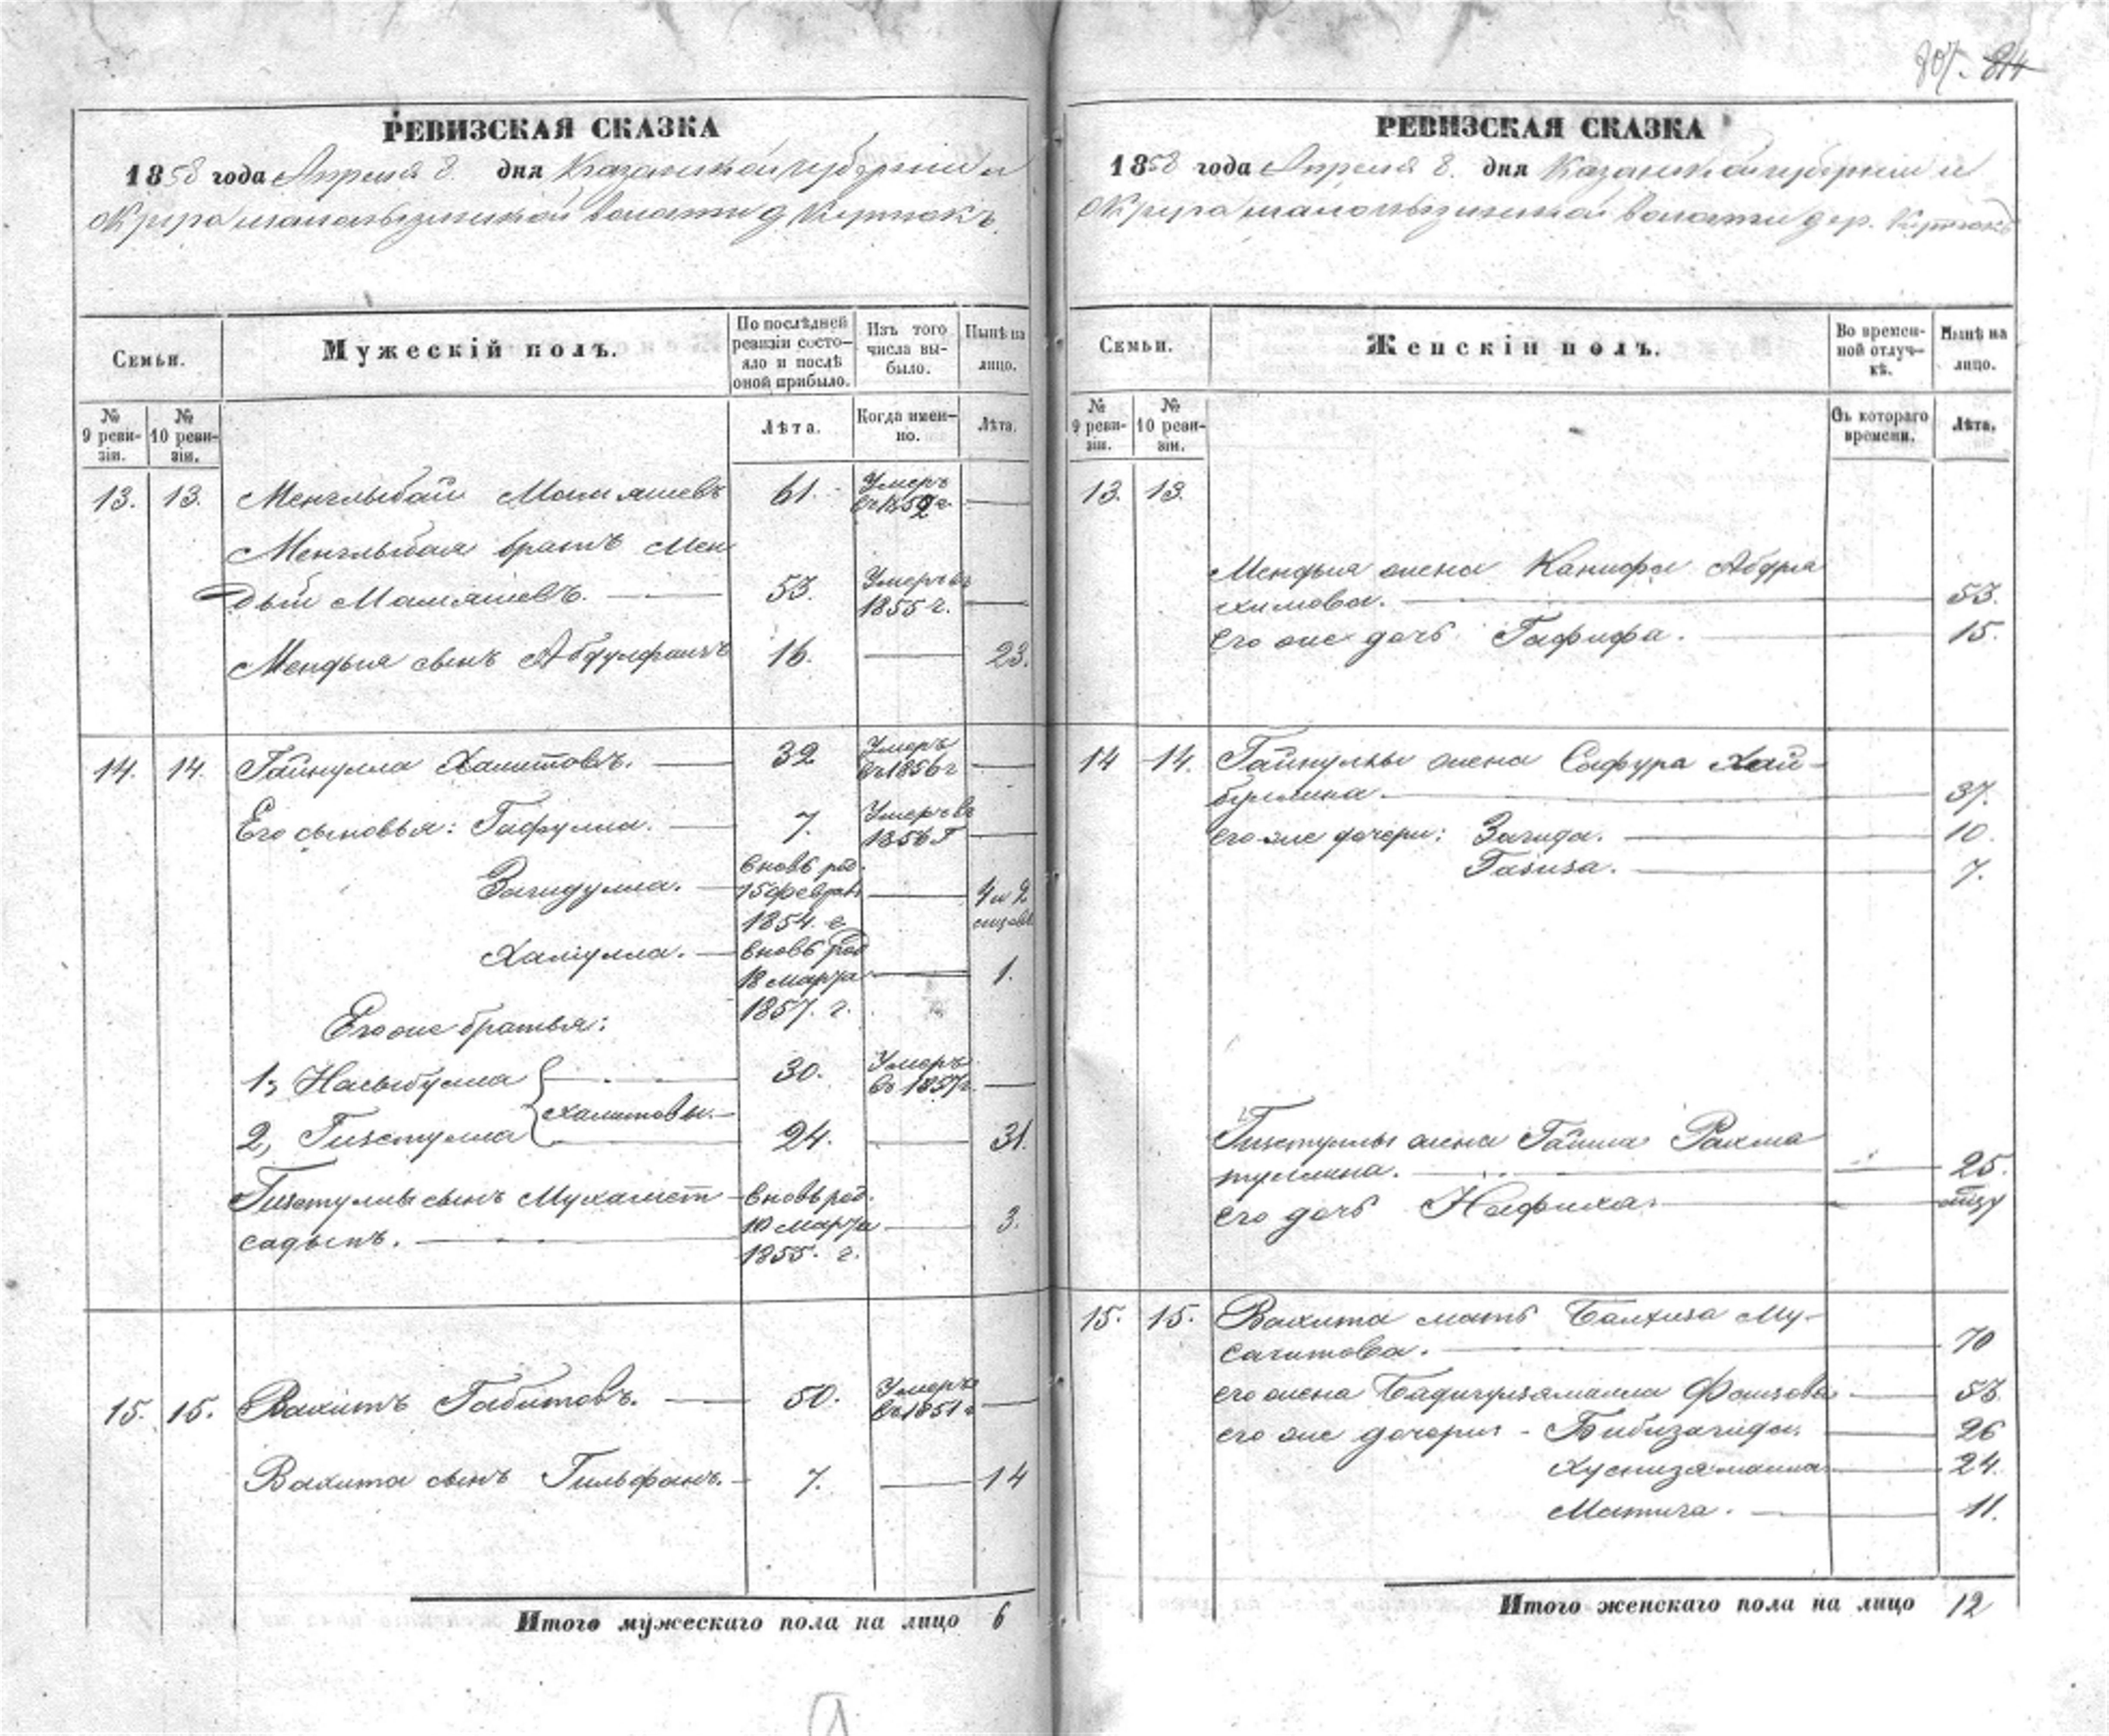 807. 814
РЕВИЗСКАЯ СКАЗКА
1858 года Апреля 8. дня Казанской губернии и
Округа малоатынской волости д
Семьи.
Мужескій полъ.
По послѣдней ревизіи состо-яло и послѣ оной прибыло.
Изъ того числа вы-было.
Нынѣ на лицо.
№ 9 реви-зіи.
№ 10 реви-зіи.
Лѣта.
Когда имен-но.
Лѣта.
13. 13. Менглыбай Мамяшевъ 61. Умеръ въ 1852 г.
Менглыбая братъ Мен
дый Мамяшевъ. 53. Умеръ въ 1855 г.
Мендыя сынъ Абдулфаизъ 16. 23.
14. 14. Гайнулла Халитовъ. 32 Умеръ въ 1856 г
Его сыновья: Гафулла. 7. Умеръ въ 1856 г
Загидулла. вновь род. 15 февраля 1854. г 4 и 2 месяца
Халіулла. вновь род 18 марта 1857. г. 1.
Его же братья:
1, Насыбулла 30. Умеръ въ 1857 г.
Халитовы.
2, Гизетулла 24. 31.
Гизетуллы сынъ Мухамет
садыкъ. вновь род. 10 марта 1855. г. 3.
15. 15. Вахитъ Габитовъ. 50. Умеръ въ 1851 г
Вахита сынъ Гильфанъ. 7. 14
Итого мужескаго пола на лицо 6
РЕВИЗСКАЯ СКАЗКА
1858 года Апреля 8. дня Казанской губернии и
Округа волости дер.
Семьи.
Женскій полъ.
Во времен-ной отлуч-кѣ.
Нынѣ на лицо.
№ 9 реви-зіи.
№ 10 реви-зіи.
Съ котораго времени.
Лѣта.
13. 13.
Мендыя жена Канифа Абдра
химова. 53.
Его же дочь Гафифа. 15.
14 14. Гайнуллы жена Сафура Хай-
буллина. 37.
его же дочери: Загида. 10.
Газиза. 7.
Гизетуллы жена Гайша Рахма
туллина. 25.
его дочь Нафиха.
15. 15. Вахита мать Балхиза Му-
сагитова. 70
его жена Бадигулзямалла Фаизова 53.
его же дочери - Бибизагида. 26
Хуснизямалла 24.
Матига. 11.
Итого женскаго пола на лицо 12